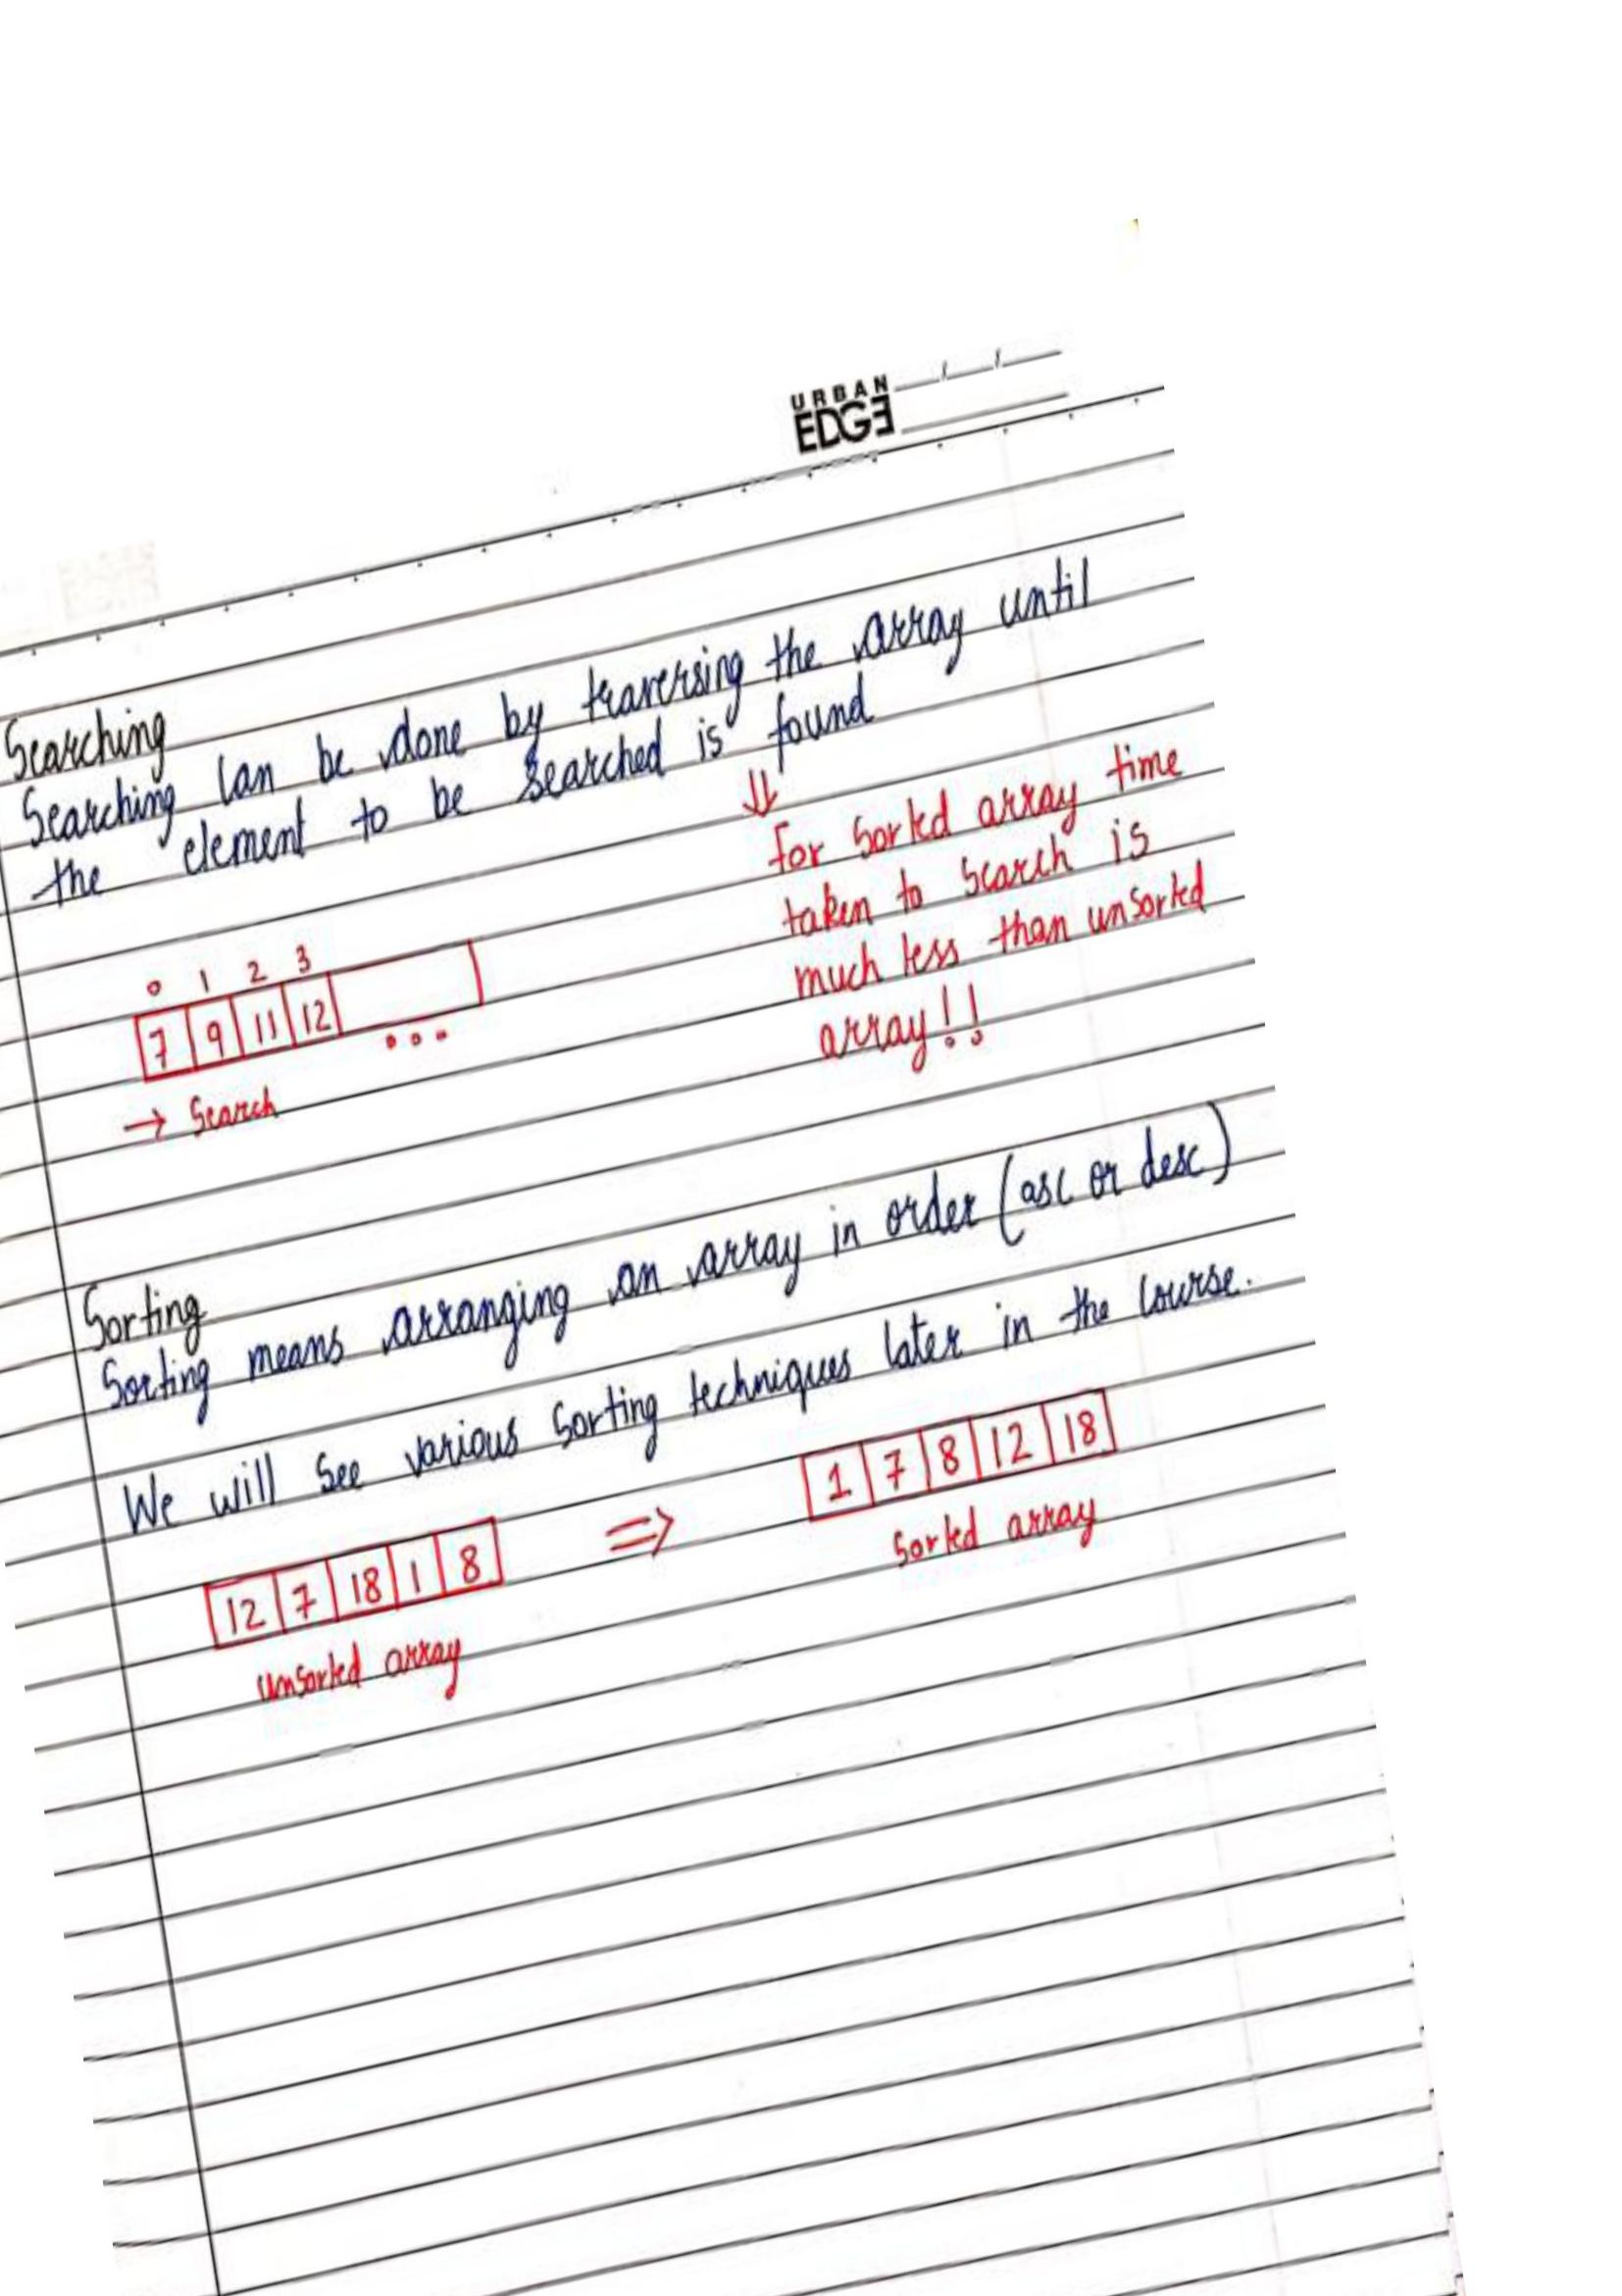 URBAN
EDGE
Searching
Searching can be done by traversing the array until
the element to be searched is found
⇓
for sorted array time
taken to search is
much less than unsorted
array!!
0 1 2 3
7 9 11 12 ...
→ Search
Sorting
Sorting means arranging an array in order (asc or desc)
We will see various sorting techniques later in the course.
12 7 18 1 8 ⇒ 1 7 8 12 18
unsorted array sorted array